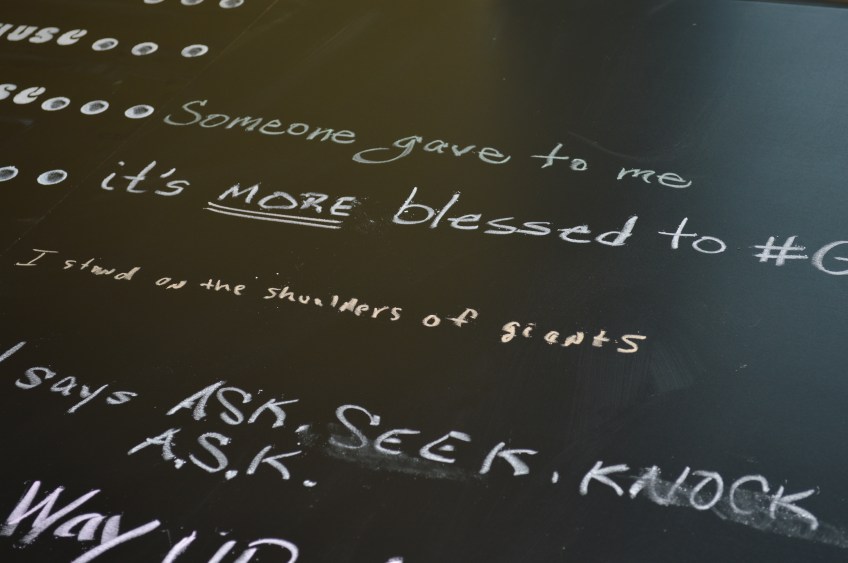 ause...
se... Someone gave to me
.. it's MORE blessed to #G
I stand on the shoulders of giants
says ASK, SEEK, KNOCK
A.S.K.
Way UP